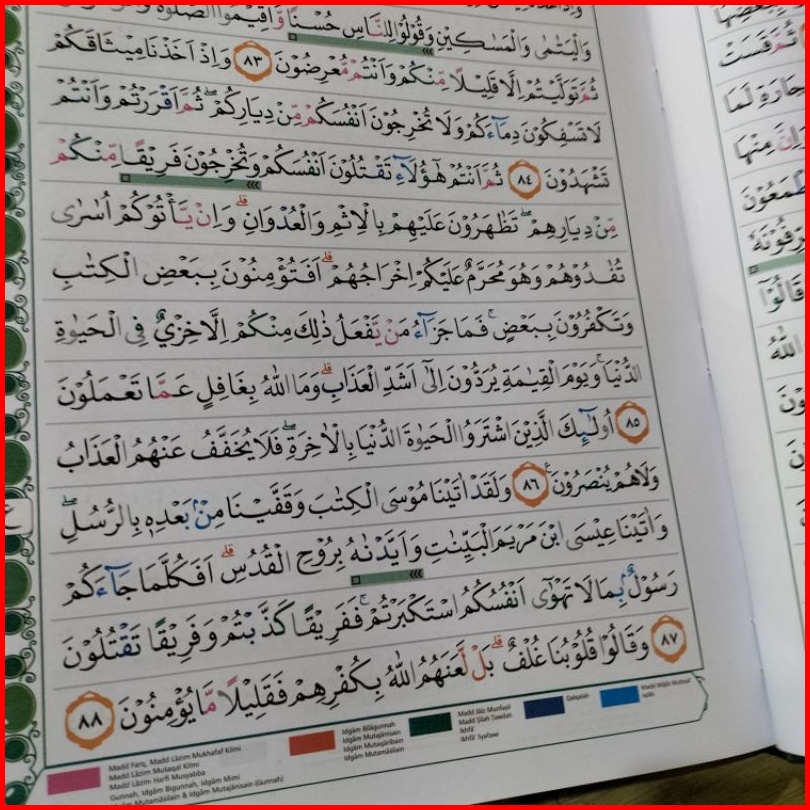 وَالْيَتٰمٰى وَالْمَسٰكِيْنِ وَقُوْلُوْا لِلنَّاسِ حُسْنًا وَّاَقِيْمُوا الصَّلٰوةَ
ثُمَّ تَوَلَّيْتُمْ اِلَّا قَلِيْلًا مِّنْكُمْ وَاَنْتُمْ مُّعْرِضُوْنَ ٨٣ وَاِذْ اَخَذْنَا مِيْثَاقَكُمْ
لَا تَسْفِكُوْنَ دِمَاۤءَكُمْ وَلَا تُخْرِجُوْنَ اَنْفُسَكُمْ مِّنْ دِيَارِكُمْ ۖ ثُمَّ اَقْرَرْتُمْ وَاَنْتُمْ
تَشْهَدُوْنَ ٨٤ ثُمَّ اَنْتُمْ هٰٓؤُلَاۤءِ تَقْتُلُوْنَ اَنْفُسَكُمْ وَتُخْرِجُوْنَ فَرِيْقًا مِّنْكُمْ
مِّنْ دِيَارِهِمْ ۖ تَظٰهَرُوْنَ عَلَيْهِمْ بِالْاِثْمِ وَالْعُدْوَانِ ۗ وَاِنْ يَّأْتُوْكُمْ اُسٰرٰى
تُفٰدُوْهُمْ وَهُوَ مُحَرَّمٌ عَلَيْكُمْ اِخْرَاجُهُمْ ۗ اَفَتُؤْمِنُوْنَ بِبَعْضِ الْكِتٰبِ
وَتَكْفُرُوْنَ بِبَعْضٍ ۚ فَمَا جَزَاۤءُ مَنْ يَّفْعَلُ ذٰلِكَ مِنْكُمْ اِلَّا خِزْيٌ فِى الْحَيٰوةِ
الدُّنْيَا ۚ وَيَوْمَ الْقِيٰمَةِ يُرَدُّوْنَ اِلٰٓى اَشَدِّ الْعَذَابِ ۗ وَمَا اللّٰهُ بِغَافِلٍ عَمَّا تَعْمَلُوْنَ
٨٥ اُولٰۤىِٕكَ الَّذِيْنَ اشْتَرَوُا الْحَيٰوةَ الدُّنْيَا بِالْاٰخِرَةِ ۖ فَلَا يُخَفَّفُ عَنْهُمُ الْعَذَابُ
وَلَا هُمْ يُنْصَرُوْنَ ࣖ ٨٦ وَلَقَدْ اٰتَيْنَا مُوْسَى الْكِتٰبَ وَقَفَّيْنَا مِنْۢ بَعْدِهٖ بِالرُّسُلِ ۖ
وَاٰتَيْنَا عِيْسَى ابْنَ مَرْيَمَ الْبَيِّنٰتِ وَاَيَّدْنٰهُ بِرُوْحِ الْقُدُسِ ۗ اَفَكُلَّمَا جَاۤءَكُمْ
رَسُوْلٌۢ بِمَا لَا تَهْوٰٓى اَنْفُسُكُمُ اسْتَكْبَرْتُمْ ۚ فَفَرِيْقًا كَذَّبْتُمْ وَفَرِيْقًا تَقْتُلُوْنَ
٨٧ وَقَالُوْا قُلُوْبُنَا غُلْفٌ ۗ بَلْ لَّعَنَهُمُ اللّٰهُ بِكُفْرِهِمْ فَقَلِيْلًا مَّا يُؤْمِنُوْنَ ٨٨
Madd Farq, Madd Lāzim Mukhafaf Kilmi
Madd Lāzim Muṡaqal Kilmi
Madd Lāzim Harfi Musyabba
Gunnah, Idgām Bigunnah, Idgām Mimi
Idgām Mutamāṡilain & Idgām Mutajānisain (Gunnah)
Idgām Bilāgunnah
Idgām Mutajānisain
Idgām Mutaqāribain
Idgām Mutamāṡilain
Madd Jāiz Munfaṣil
Madd Ṣilah Ṭawīlah
Ikhfā'
Ikhfā' Syafawi
Qalqalah
Madd Wājib Muttaṣil
Iqlāb